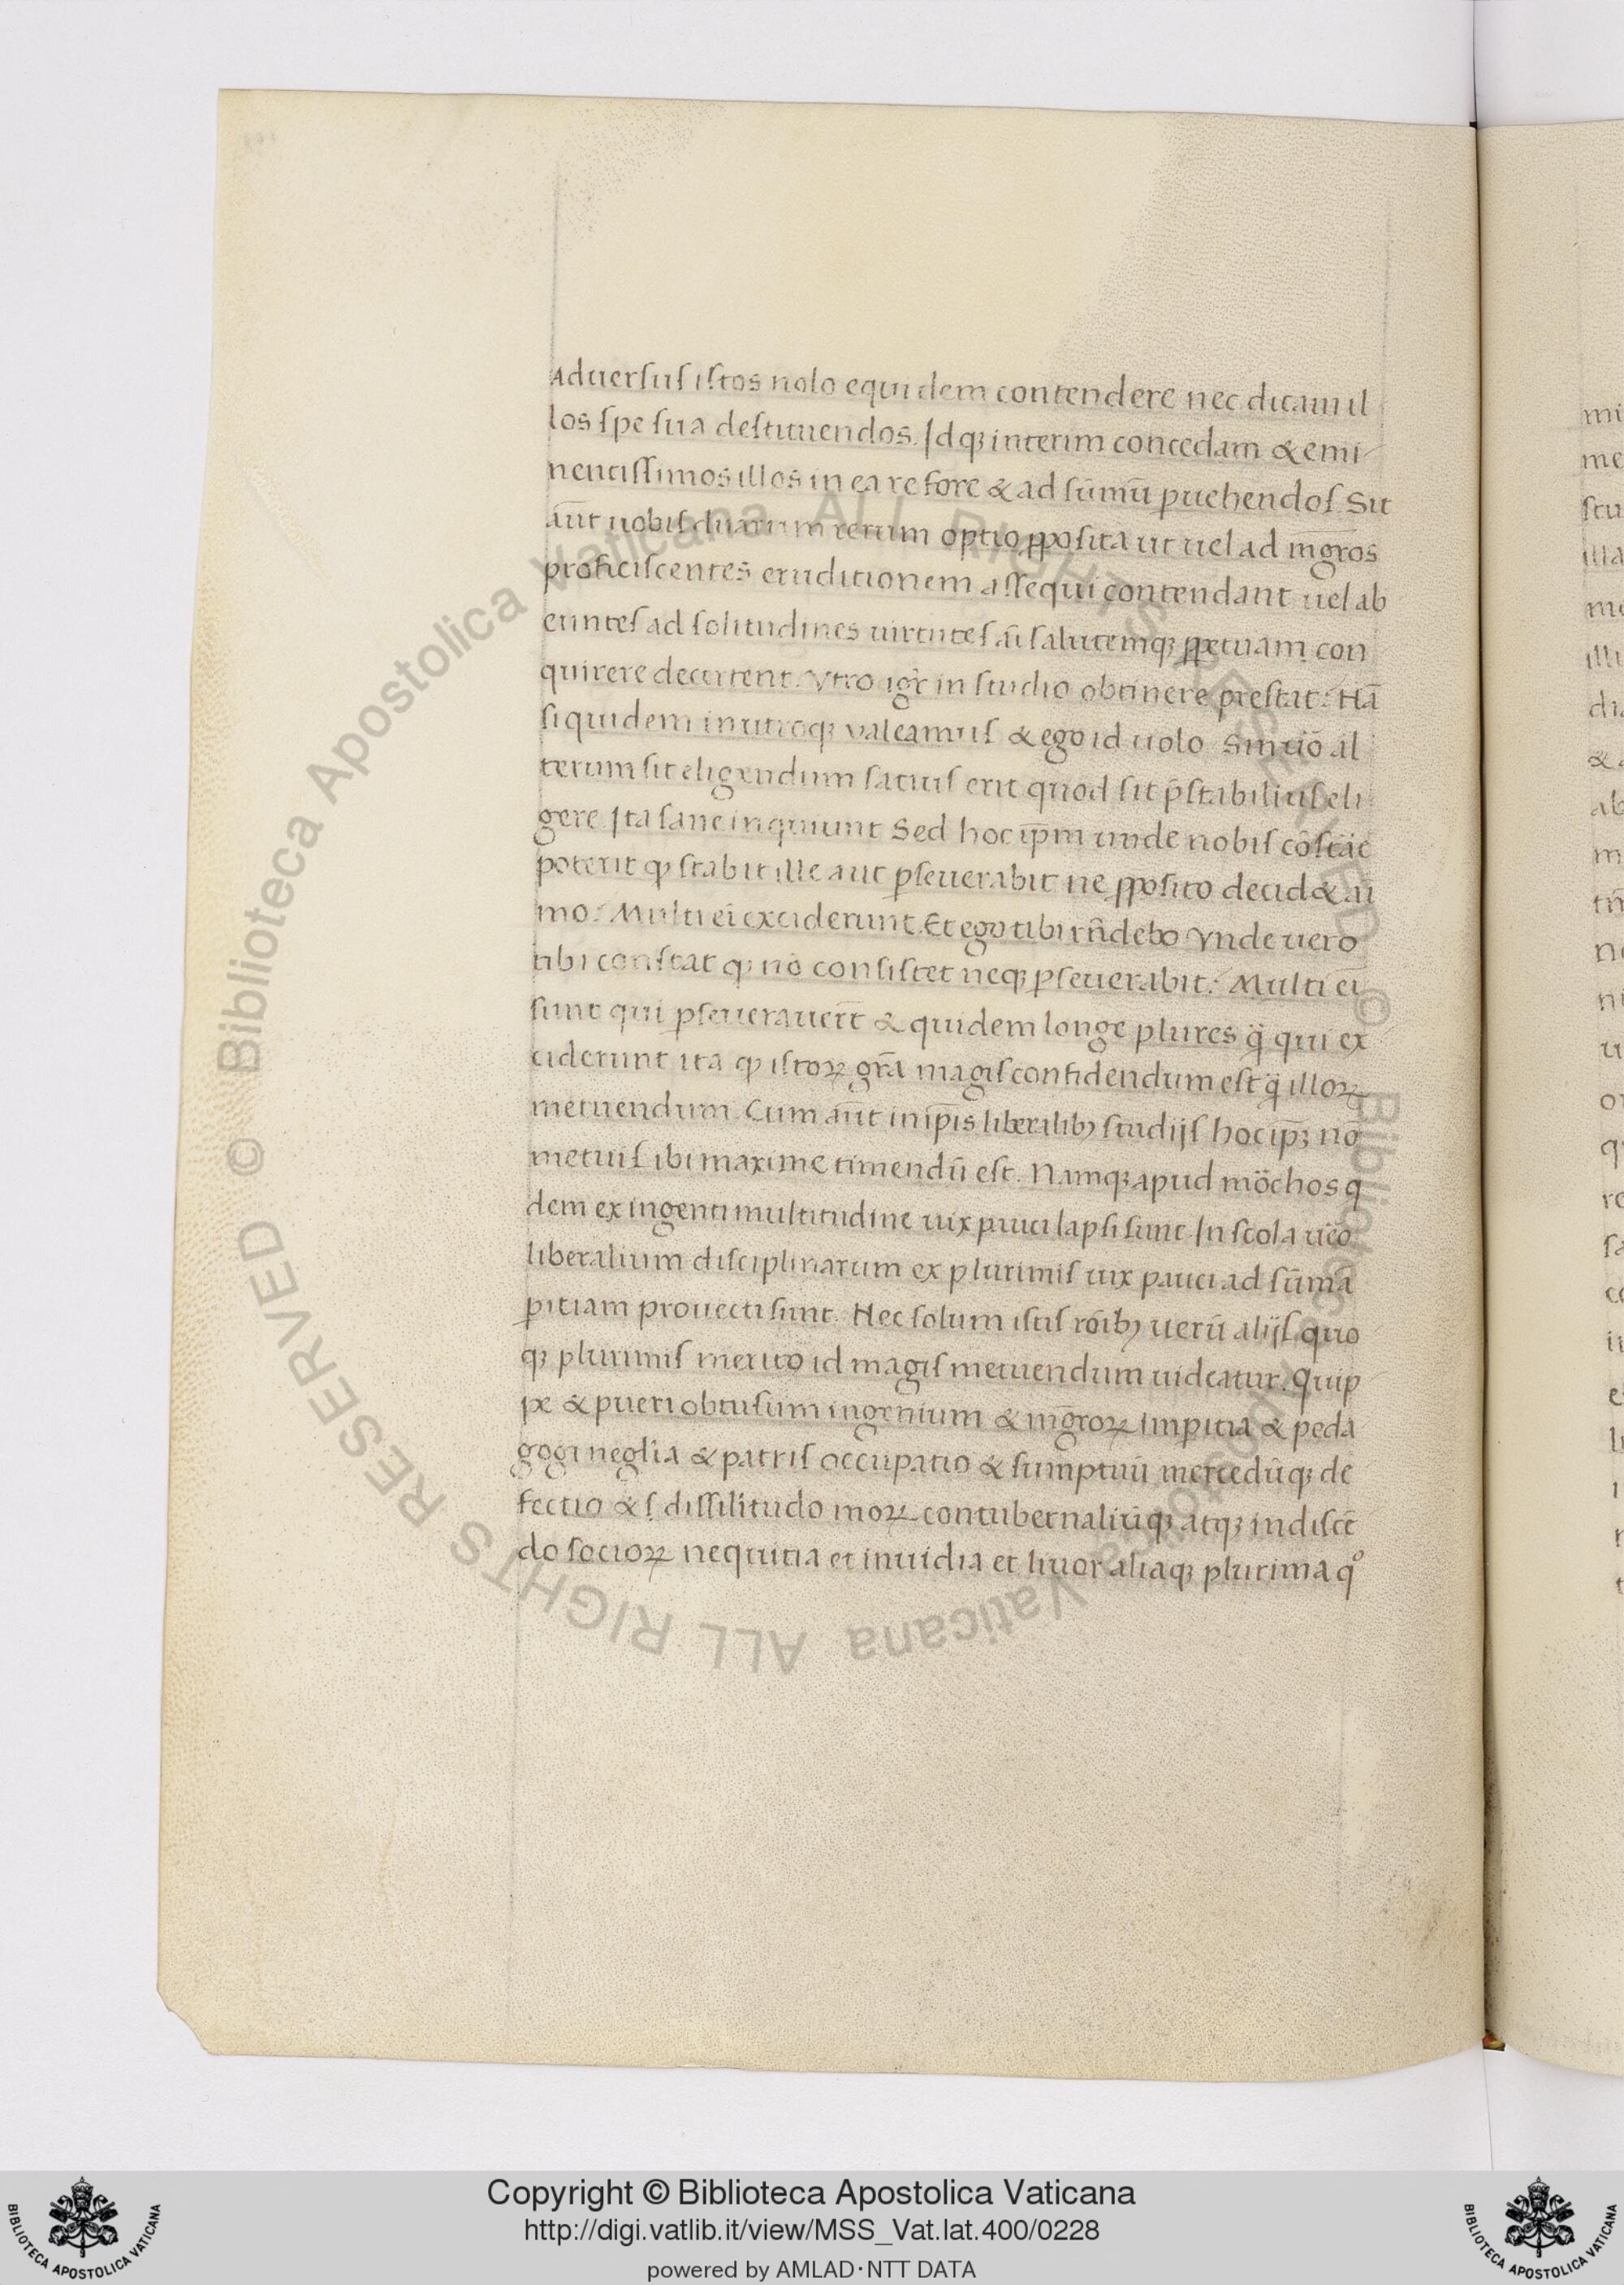 Aduersus istos nolo equidem contendere nec dicam il
los spe sua destituendos. Idq; interim concedam & emi
nentissimos illos in ea re fore & ad sūmū puehendos. Sit
aūt uobis duarum rerum optio pposita ut uel ad mgr̄os
proficiscentes eruditionem assequi contendant uel ab
euntes ad solitudines uirtutes aī salutemq; ppetuam con
quirere decertent. Vtro igr̄ in studio obtinere prestat? Nā
siquidem in utroq; valeamus & ego id uolo. Sin uō al
terum sit eligendum satius erit quod sit p̄stabilius eli
gere. Ita sane inquiunt. Sed hoc ip̄m unde nobis
poterit qp stabit ille aut pseuerabit ne pposito decid& aī
mo? Multi eī exciderunt. Et ego tibi rn̄debo Vnde uero
tibi constat qp nō consistet neq; pseuerabit? Multi eī
sunt qui pseuerauer̄t & quidem longe plures q̄ qui ex
ciderunt ita qp istoꝝ gr̄a magis confidendum est q̄ illoꝝ
metuendum. Cum aūt in ip̄is liberalib; studijs hoc ip̄; nō
metuis ibi maxime timendū est. Namq; apud mōchos q
dem ex ingenti multitudine uix pauci lapsi sunt. In scola uēo
liberalium disciplinarum ex plurimis uix pauci ad sūma
pitiam prouecti sunt. Nec solum istis rōib; uerū alijs quo
q; plurimis merito id magis metuendum uideatur. Quip
pe & pueri obtusum ingenium & mgr̄oꝝ impitia & peda
gogi negl̄ia & patris occupatio & sumptuū mercedūq; de
fectio & s; dissilitudo moꝝ contubernaliūq; atq; in discē
do socioꝝ nequitia et inuidia et liuor aliaq; plurima qº
mi
me
stu
illa
illi
dia
ab
Copyright © Biblioteca Apostolica Vaticana
http://digi.vatlib.it/view/MSS_Vat.lat.400/0228
powered by AMLAD·NTT DATA
BIBLIOTECA APOSTOLICA VATICANA
BIBLIOTECA APOSTOLICA VATICANA
© Biblioteca Apostolica Vaticana ALL RIGHTS RESERVED
© Biblioteca Apostolica Vaticana ALL RIGHTS RESERVED